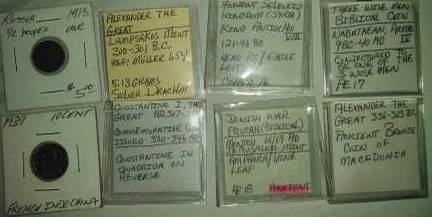 RUSSIA 1913
1/2 kopek
ALEXANDER THE
GREAT
LAMPSAKOS MINT
310-301 B.C.
REF: MULLER 654
5.13 GRAMS
SILVER DRACHM
ANCIENT SELEUCID
KINGDOM (SYRIA)
KING ANTIOCHUS
VIII
121-96 BC
HEAD RT/ EAGLE
LEFT
THREE WISE MEN
BIBLICAL COIN
NABATAEAN,
9BC-40 AD IV
CONJECTURED
ONE OF THE
3 WISE MEN
FE 17
1939 10 CENT
FRENCH INDO CHINA
CONSTANTINE I, THE
GREAT
COMMEMORATIVE
ISSUED 330-346 AD
CONSTANTINE IN
QUADRIGA ON
REVERSE
JEWISH WAR
PRUTAH (BIBLICAL)
MINTED 67/69 AD
JERUSALEM MINT
AMPHORA/VINE
LEAF
$18
ALEXANDER THE
GREAT 336-323 BC
ANCIENT BRONZE
COIN OF
MACEDONIA